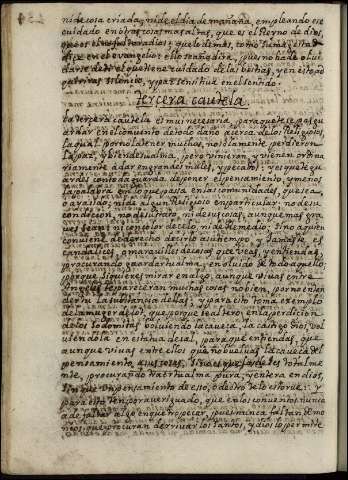 ni de cosa criada, ni de el dia de mañana, empleando ese
cuidado en otras cosas mas altas, que es el Reyno de dios,
que lo demás, como su mag. esta
dize en el evangelio: ello se añadira, pues no ha de olui-
darse de ti el que tiene cuidado de las bestias, y en esto ad-
quiriras silencio, y paz sensitiua en el sentido.
tercera cautela.
La tercera cautela es mui necesaria, para que te sepas gu-
ardar en el convento de todo daño acerca de los Religiosos,
la qual por no la tener muchos, no solamente perdieron
la paz, y bien de su alma, pero vinieron y vienen ordina-
riamente a dar en grandes males, y pecados; y es que te gu-
ardes con toda guarda de poner el pensamiento, y menos
la palabra en lo que pasa en la comunidad, que sea,
o aya sido, ni de algun Religioso en particular: no de su
condicion, no de su trato, ni de sus cosas, aunque mas gra-
ues sean, ni con color de celo, ni de remedio; sino a quien
conuiene de derecho decirlo a su tiempo: y jamas te es-
candalices, ni maravilles de cosas que veas, y entiendas,
procurando guardar tu alma, en olvido de todo aquello;
porque si quieres mirar en algo, aunque vivas entre
Angeles te pareceran muchas cosas no bien, por no enten-
der tu la sustancia dellas; y para esto toma exemplo
de la muger de lot, que porque se altero en la perdicion
de los sodomitas boluiendo la caueça, la castigo Dios, vol-
uiendola en estatua de sal, para que entiendas, que
aunque vivas entre
pensamiento,
mente, procurando guardar tu alma pura, y entera en dios,
sin que un pensamiento de eso, o de esotro te lo estorue: y
para esto ten por averiguado, que en los conuentos nunca
a de faltar algo en que tropeçar, pues nunca faltan demo-
nios, que procuran derrivar los santos, y dios lo permite